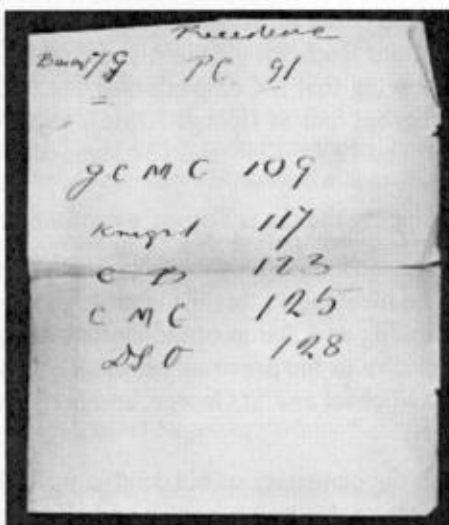 Precedence
Baron 79 PC 91
GCMG 109
Knight 117
CB 123
CMG 125
DSO 128